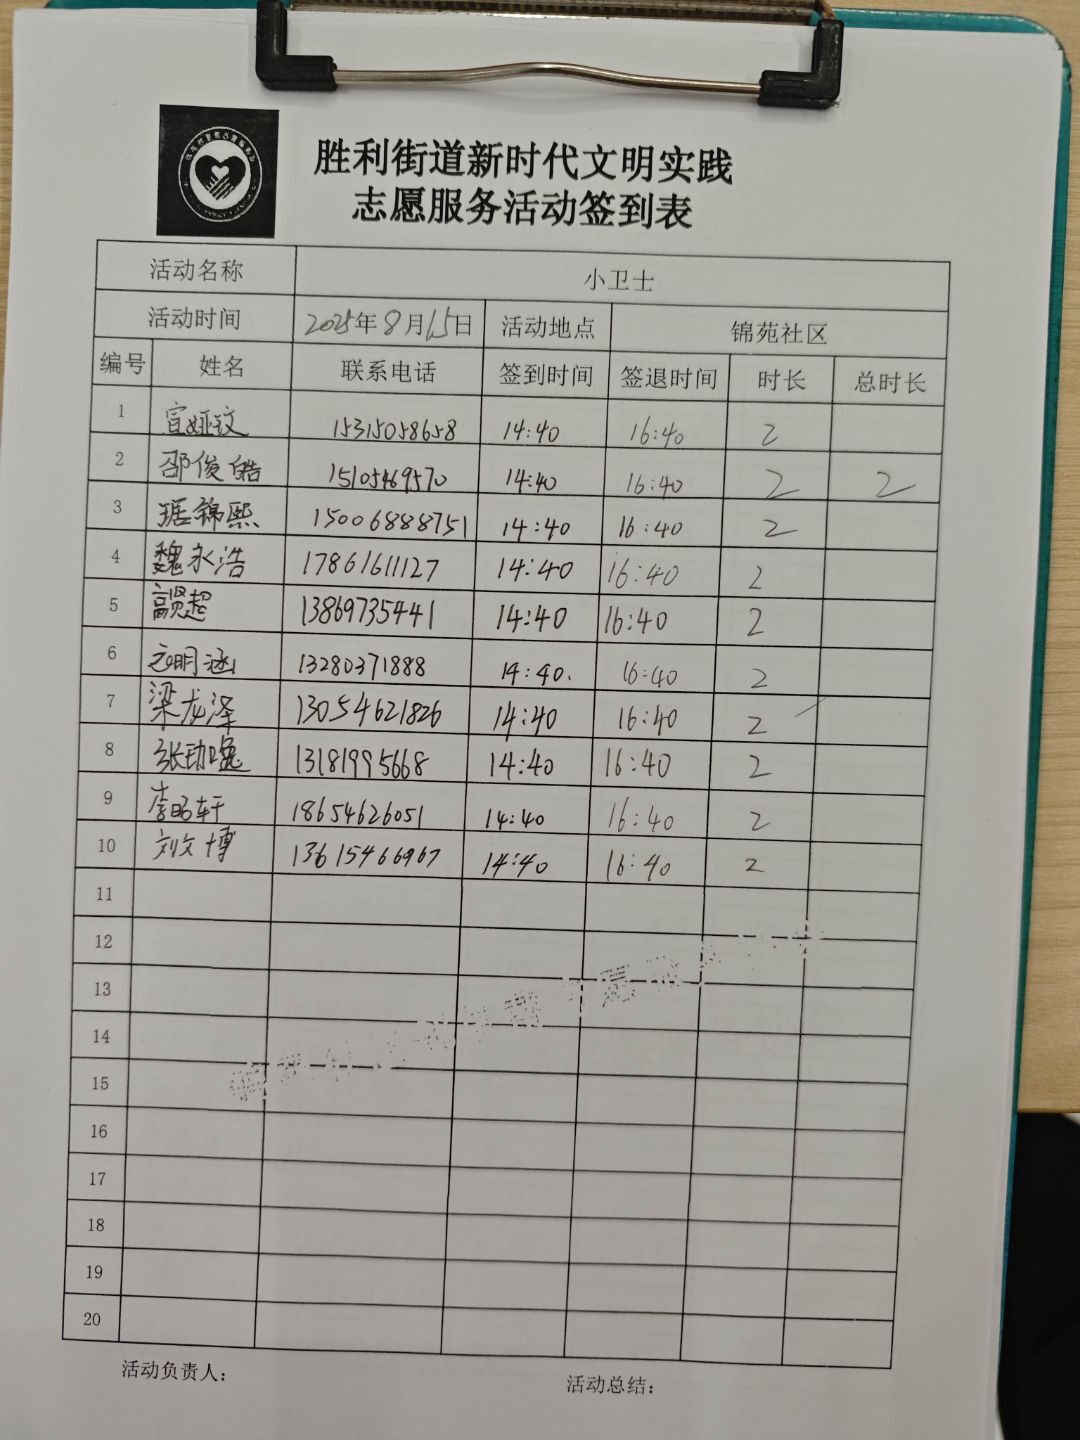 胜利街道新时代文明实践
志愿服务活动签到表
活动名称 小卫士
活动时间 2025年8月15日 活动地点 锦苑社区
编号 姓名 联系电话 签到时间 签退时间 时长 总时长
1 宣娅玟 15315058658 14:40 16:40 2
2 邵俊皓 15105469570 14:40 16:40 2 2
3 琚锦熙 15006888751 14:40 16:40 2
4 魏永浩 17861611127 14:40 16:40 2
5 高贤超 13869735441 14:40 16:40 2
6 明涵 13280371888 14:40. 16:40 2
7 梁龙泽 13054621826 14:40 16:40 2
8 张 13181995668 14:40 16:40 2
9 李昭轩 18654626051 14:40 16:40 2
10 刘文博 13615466967 14:40 16:40 2
11
12
13
14
15
16
17
18
19
20
活动负责人: 活动总结: